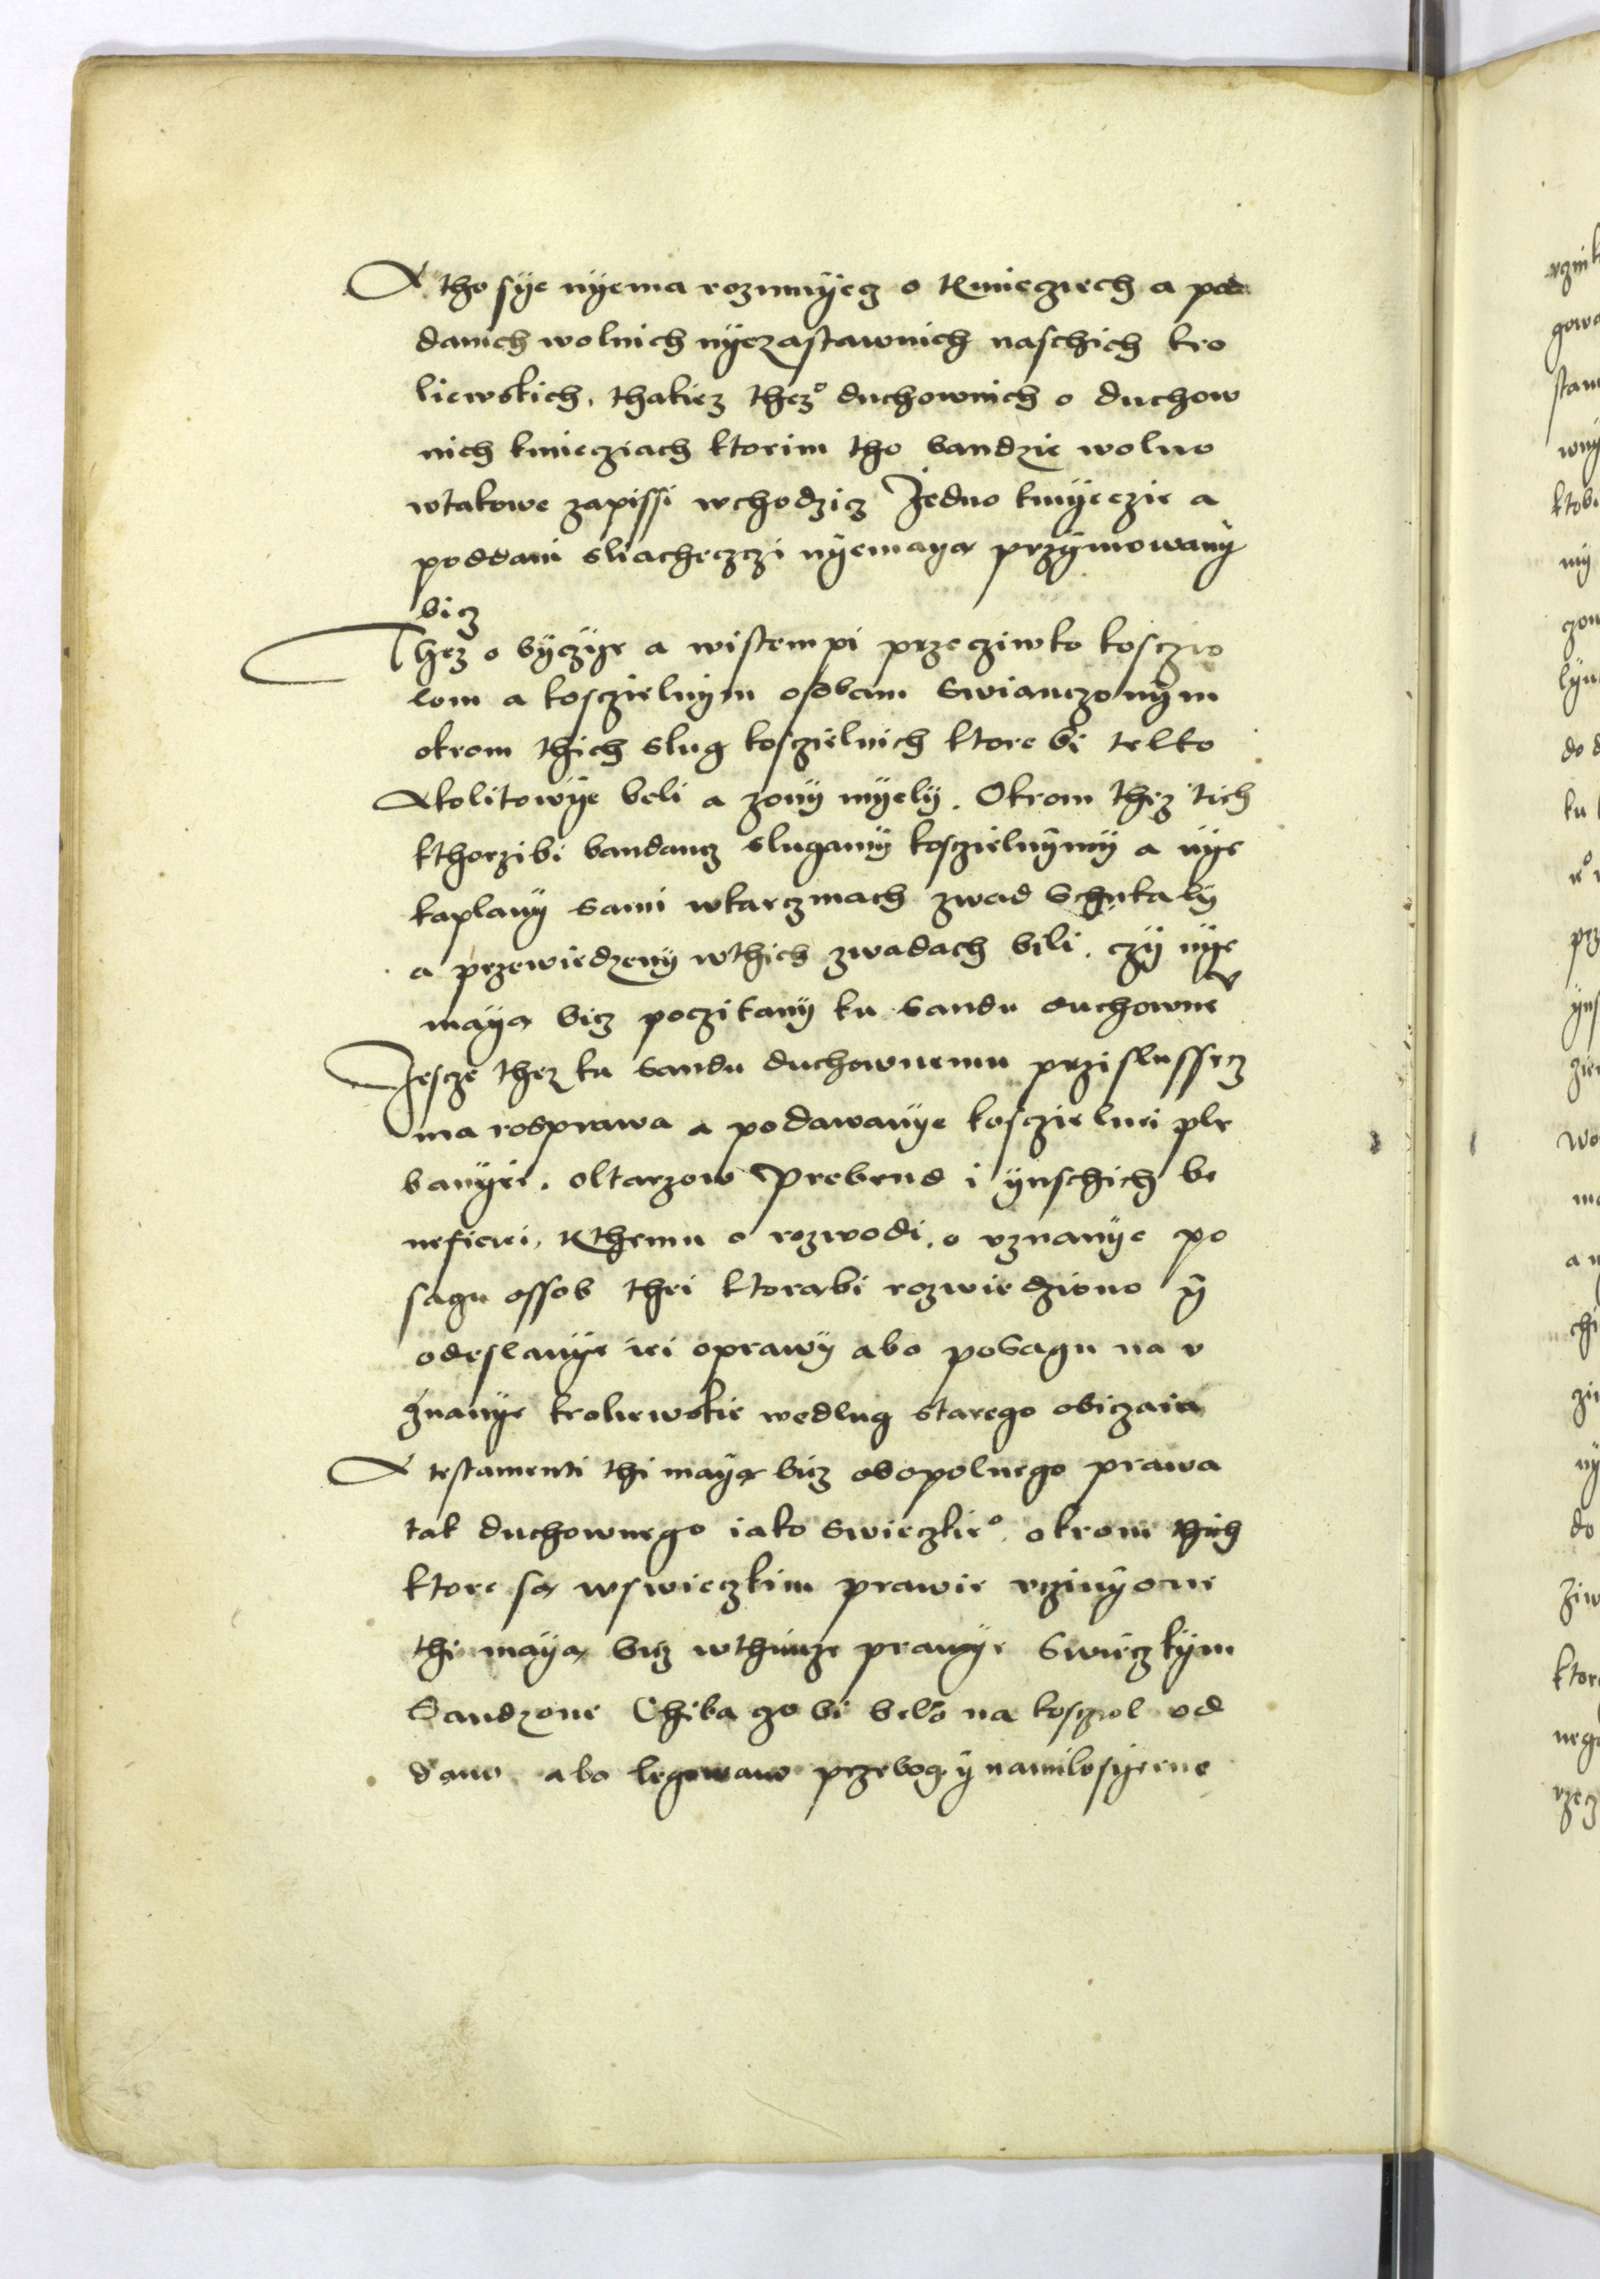 A tho sye nyema rozumyecz o Kmieczech a pod
danich wolnich nyezastawnich naschich kro
liewskich, thakiez thez duchownich o duchow
nich kmiecziach ktorim tho bandzie wolno
wtakowe zapissi wchodzicz Jedno kmyeczie a
poddani sliacheczczi nyemaya przymowany
bicz
Thez o byczye a wistempi przecziwko kosczio
lom a kosczielnym osobam swianczonym
okrom thich slug kosczielnich ktore bi telko
Akolitowye beli a zony myely. Okrom thez tich
kthorzibi bandancz slugamy kosczielnymy a nye
kaplany sami wkarczmach zwad schukaly
a przewiedzeny wthich zwadach bili. czy nye
maya bicz poczitany ku sandu duchowne
Jescze thez ku sandu duchownemu przislussecz
ma rosprawa a podawanye kosczielnei ple
banyei. oltarzow Prebend i ynschich be
neficiei, Kthemu o rozwodi, o uznanye po
sagu ossob thei ktorabi rozwiedziono y
odeslanye iei oprawy abo posagu na u
znanye kroliewskie wedlug starego obiczaia
A testamenti thi maya bicz obopolnego prawa
tak duchownego iako swieczkie° okrom thich
ktore sa wswieczkim prawie uczinyone
thi maya bicz wthimze prawye swieczkym
Sandzone Chiba zo bi belo na kosczol od
dano abo legowano przebog y namilosyerne